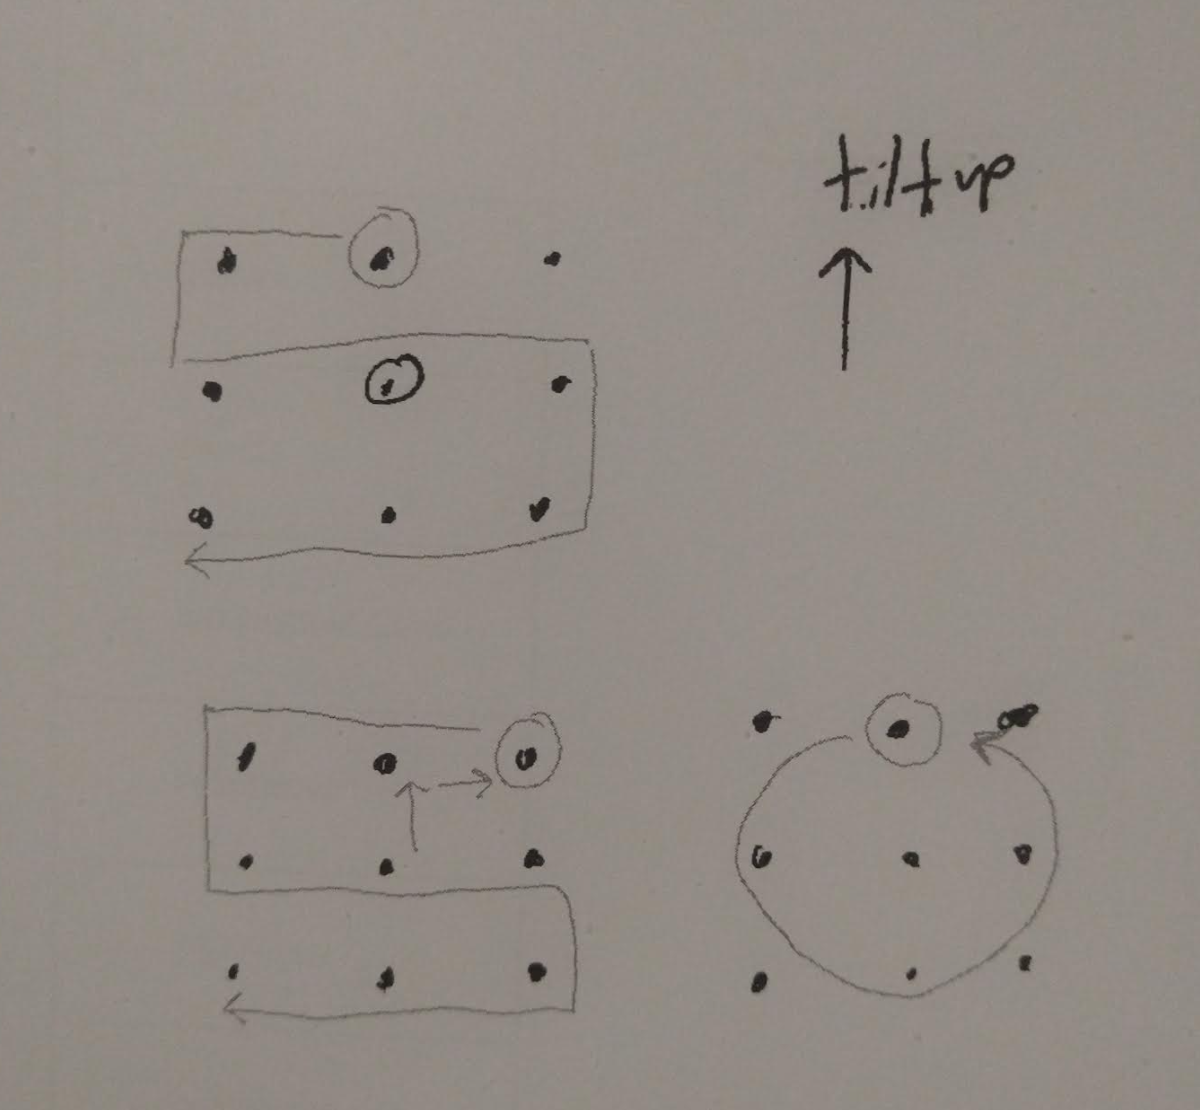 tilt up